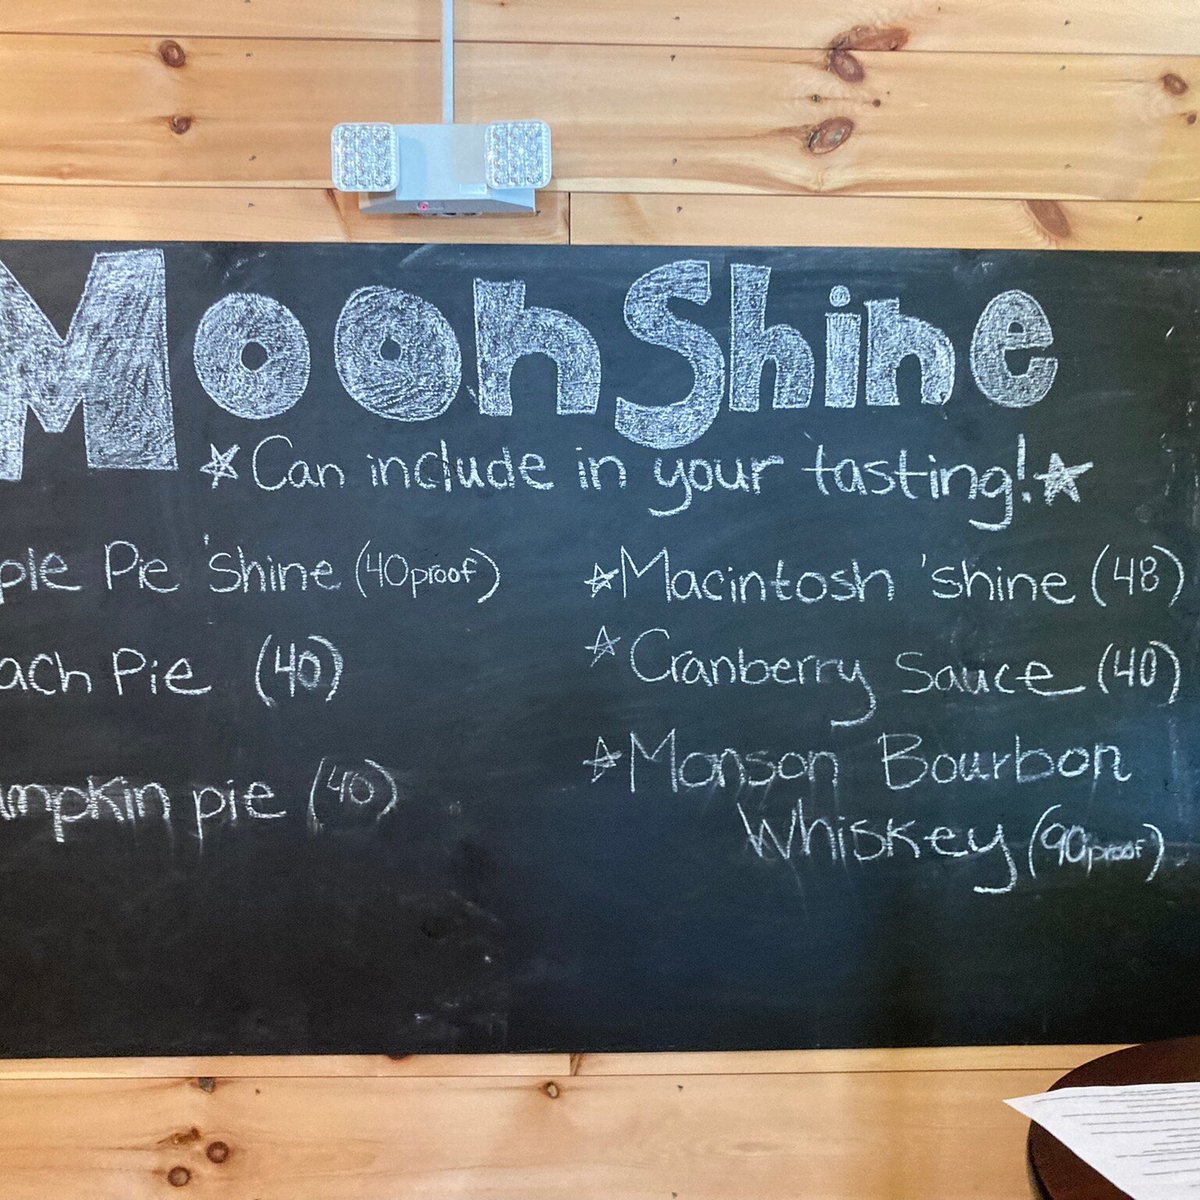 MoonShine
*Can include in your tasting!*
ple Pie 'shine (40proof)
ach Pie (40)
mpkin pie (40)
*Macintosh 'shine (48)
*Cranberry Sauce (40)
*Monson Bourbon
Whiskey (90proof)